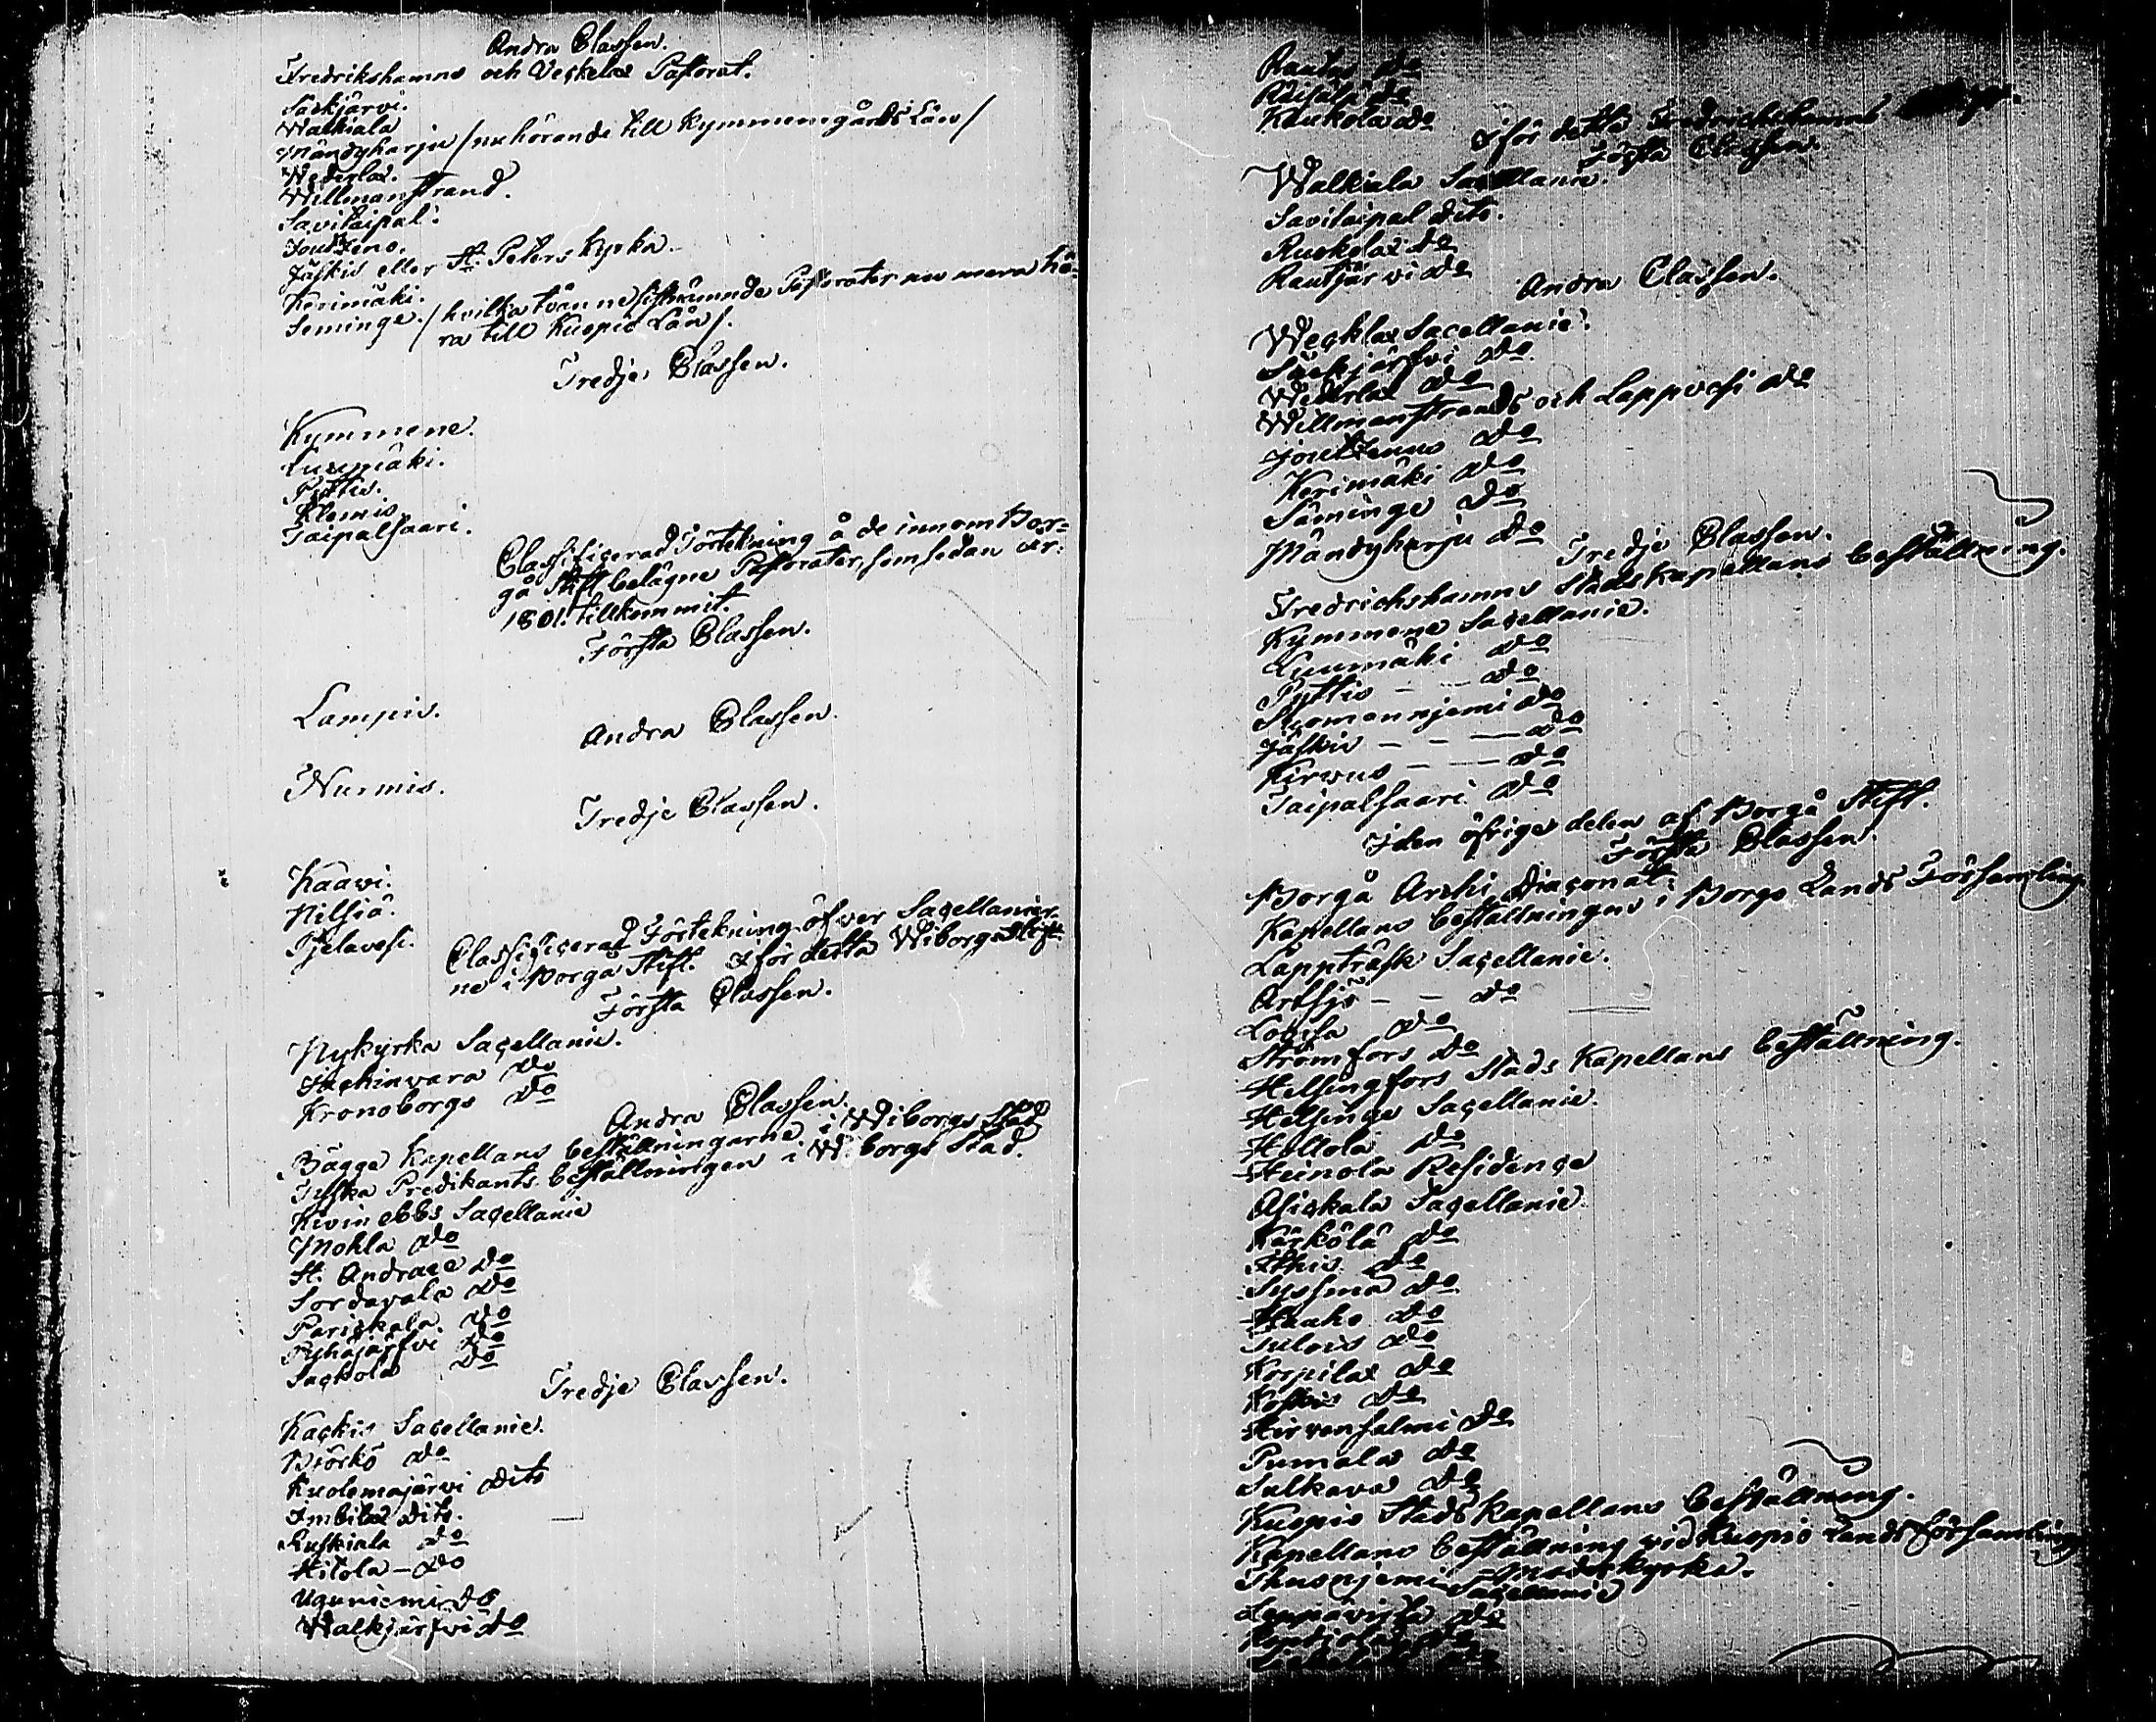 Andra Classen.
Fredrikshamns och Veckelax Pastorat.
Säckjärvi.
Walkiala
Mändyharju /nu hörande till Kymmenegårds Län/
Wederlax.
Willmanstrand.
Savitaipal.
Joutzeno.
Jäskis eller St. Peters Kyrka.
Kerimäki.
Seminge. /hvilka tvänne sistnämnde Pastorater nu mera hö-
ra till Kuopio Län/.
Tredje Classen.
Kymmene.
Luumäki.
Pyttis.
Klemis.
Taipalsaari.
Classificerad Förtekning å de innom Bor-
gå Stift belägne Pastorater, som sedan år
1801. tillkommit.
Första Classen.
Lampis.
Andra Classen.
Nurmis.
Tredje Classen.
Kaavi.
Nilsiä.
Pjelavesi.
Classificerad Förtekning öfver Sacellanier-
ne i Borgå Stift. I för detta Wiborgs
Första Classen.
Nykyrka Sacellanie.
Jachinvara do
Kronoborgs do
Andra Classen.
Bägge Kapellans beställningarne i Wiborgs Stad
Tyska Predikants beställningen i Wiborgs Stad.
Kivinebbs Sacellanie
Mohla do
St. Andraee do
Sordavala do
Parickala do
Pyhäjärfvi do
Sackola do
Tredje Classen.
Kackis Sacellanie.
Björkö do
Kuolemajärvi dito
Imbilax dito.
Ruskiala do
Hitola - do
Uguniemi do
Walkjärfvi do
Rautus do
Räisälä do
Kaukola do
I för detta Fredrichshamns
Första Classen.
Walkiala Sacellanie.
Savitaipal dito.
Ruokolax do
Rautjärvi do
Andra Classen.
Wecklax Sacellanie.
Säckjärfvi do
Wederlax do
Willmanstrands och Lappvesi do
Joutzenno do
Kerimäki do
Säminge do
Mändyharju do
Tredje Classen.
Fredrichshamns Stadskapellans beställning.
Kymmene Sacellanie.
Luumäki do
Pyttis - - do
Suomenniemi do
Jäskis - - - do
Kirvus - - - do
Taipalsaari do
I den öfrige delen af Borgå Stift.
Första Classen.
Borgå Archi Diaconat.
Kapellans beställningen i Borgo Lands Församling
Lappträsk Sacellanie.
Artsjö - - do
Lovisa do
Strömfors do
Helsingfors Stads Kapellans beställning.
Helsinge Sacellanie.
Hollola do
Heinola Residence
Asickala Sacellanie.
Kärkölä do
Ithis do
Syssmä do
Hauho do
Tulois do
Korpilax do
Koskis do
Hirvensalmi do
Pumala do
Sulkava do
Kuopio Stadskapellans beställning.
Kapellans beställning vid Kuopio Landsförsamlings
Moderkyrka.
Thusniemi Sacellanie
Leppävirta do